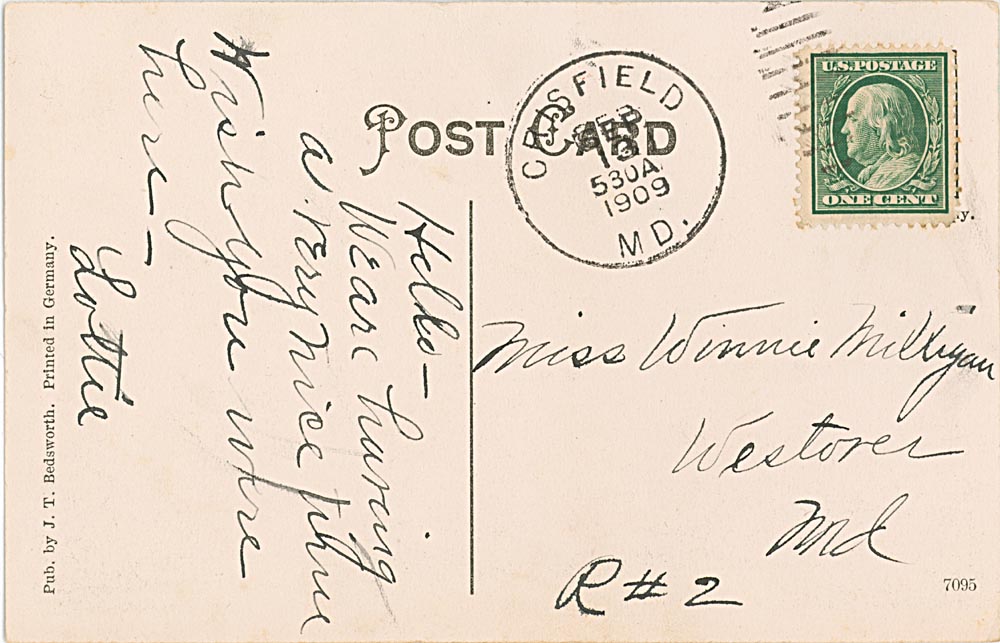 POST CARD
CRISFIELD
SEP
13
530A
1909
MD.
U.S. POSTAGE
ONE CENT
Hello—
We are having
a very nice time
Wish you were
here—
Lottie
Miss Winnie Milligan
Westover
Md
R#2
Pub. by J. T. Bedsworth. Printed in Germany.
7095